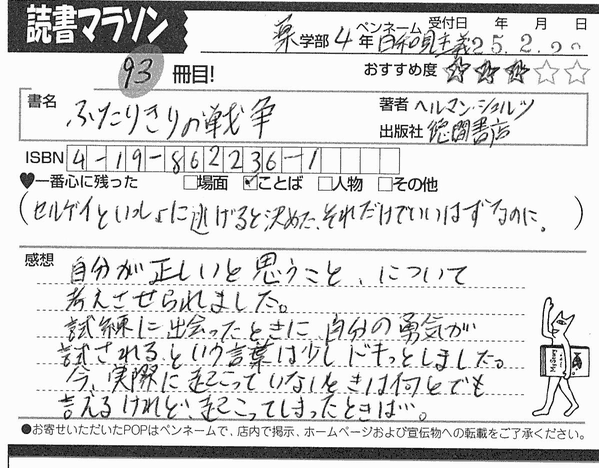 読書マラソン
ペンネーム 受付日 年 月 日
薬学部4年 25.2.20
93冊目!
おすすめ度 ★★★☆☆
書名 ふたりきりの戦争
著者 ヘルマン・シュルツ
出版社 徳間書店
ISBN 4-19-862236-1
♥一番心に残った □場面 ☑ことば □人物 □その他
(セルゲイといっしょに逃げると決めた、それだけでいいはずなのに。)
感想
自分が正しいと思うこと、について
考えさせられました。
試練に出会ったときに、自分の勇気が
試される、という言葉は少しドキッとしました。
今、実際に起こっていないときは何とでも
言えるけれど、起こってしまったときは…。
●お寄せいただいたPOPはペンネームで、店内で掲示、ホームページおよび宣伝物への転載をご了承ください。